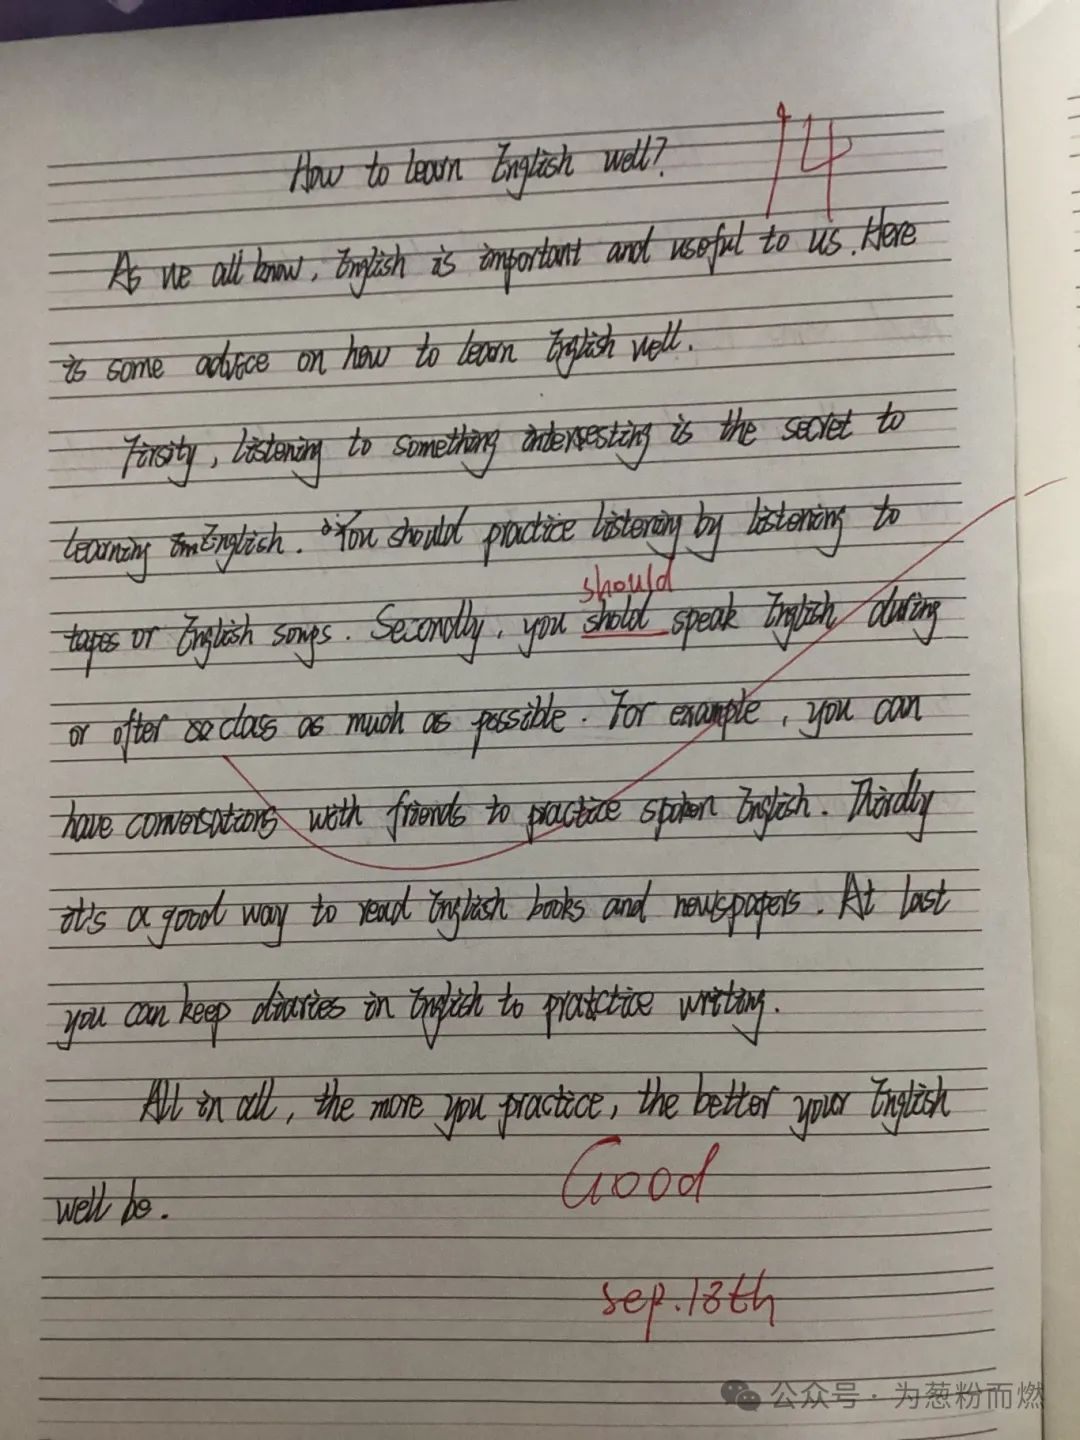 How to learn English well?
14
As we all know, English is important and useful to us. Here
is some advice on how to learn English well.
Firstly, listening to something intersesting is the secret to
learning English. You should practice listening by listening to
should
tapes or English songs. Secondly, you shold speak English during
or after class as much as possible. For example, you can
have conversations with friends to practice spoken English. Thirdly
it's a good way to read English books and newspapers. At last
you can keep diaries in English to practice writing.
All in all, the more you practice, the better your English
well be.
Good
sep.18th
公众号 · 为葱粉而燃